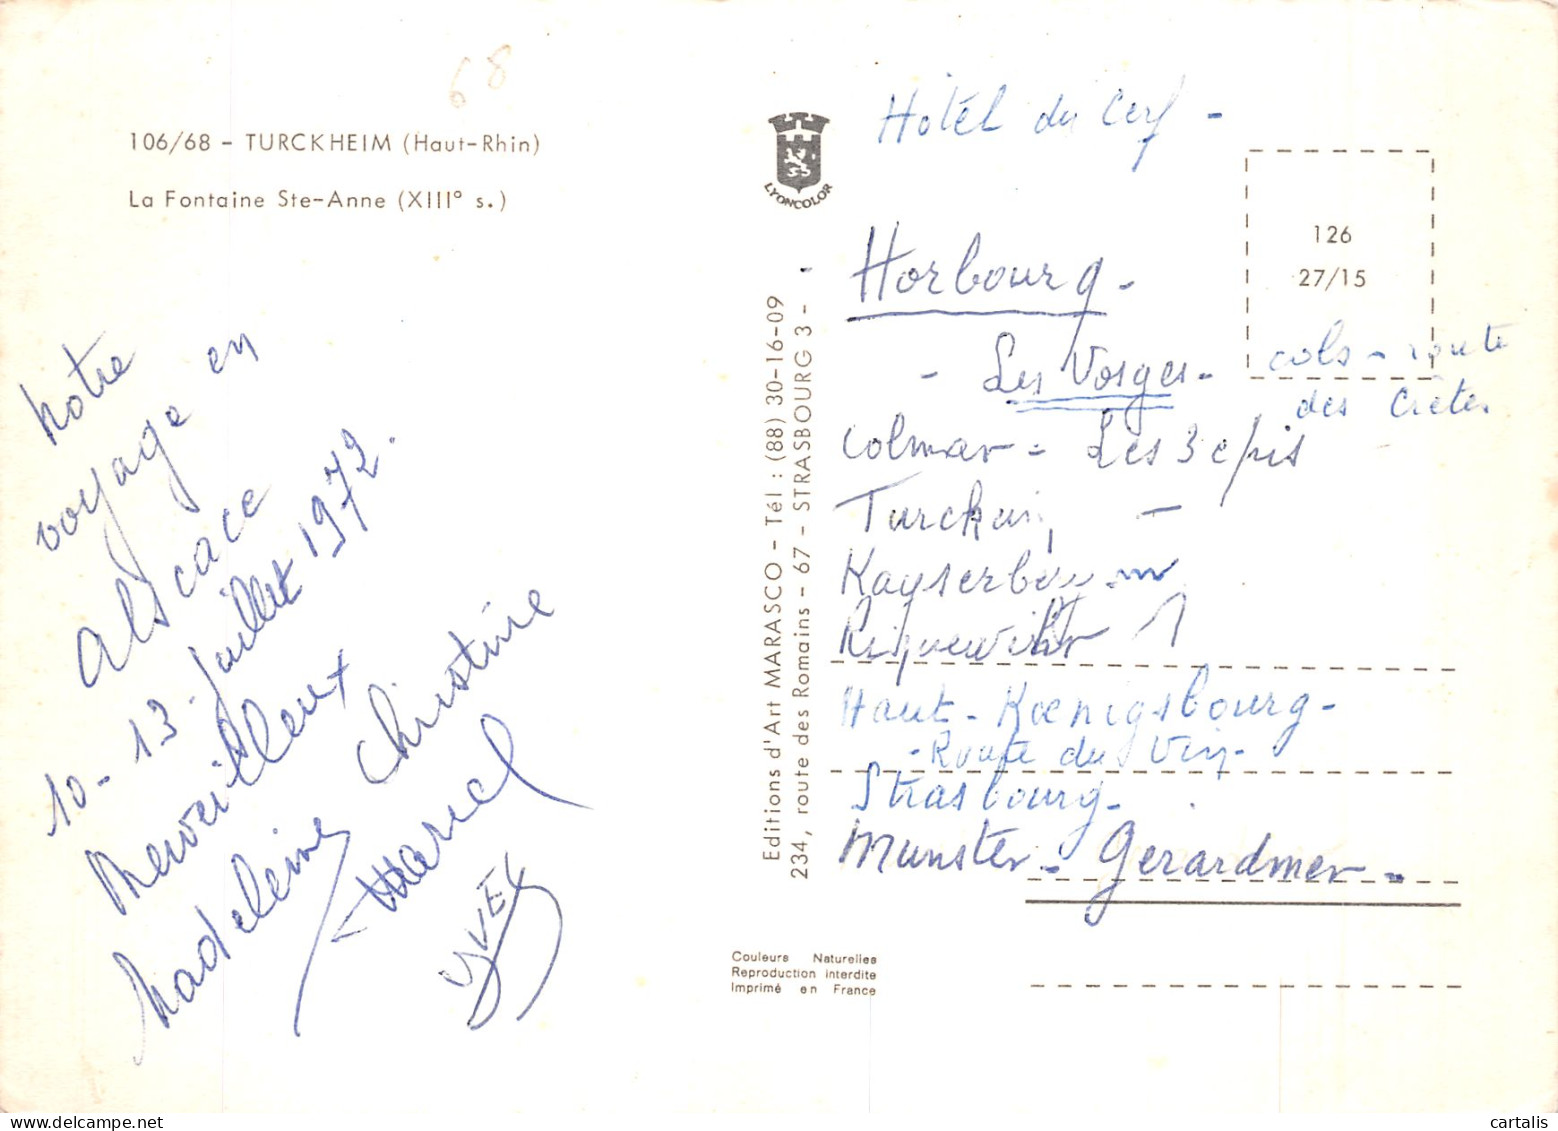 68
106/68 - TURCKHEIM (Haut-Rhin)
La Fontaine Ste-Anne (XIII° s.)
notre
voyage en
Alscace
10 - 13 - juillet 1972.
Merveilleux
Madeleine Christine
Marcel
YVES
LYONCOLOR
Editions d'Art MARASCO - Tél : (88) 30-16-09
234, route des Romains - 67 - STRASBOURG 3 -
Couleurs Naturelles
Reproduction interdite
Imprimé en France
Hôtel du Cerf -
126
27/15
Horbourg -
- Les Vosges - cols - route
des Crêtes
Colmar = Les 3 épis
Turckeim -
Kayserberg
Riquewihr
Haut - Kœnigsbourg -
- Route du Vin -
Strasbourg -
Munster - Gerardmer -
cartalis